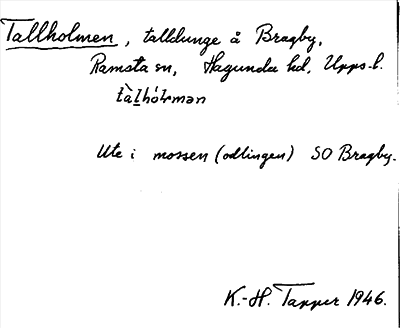 Tallholmen, talldunge å Bragby,
Ramsta sn, Hagunda hd, Upps. l.
tàlhólmən
Ute i mossen (odlingen) SO Bragby.
K.-H. Tapper 1946.